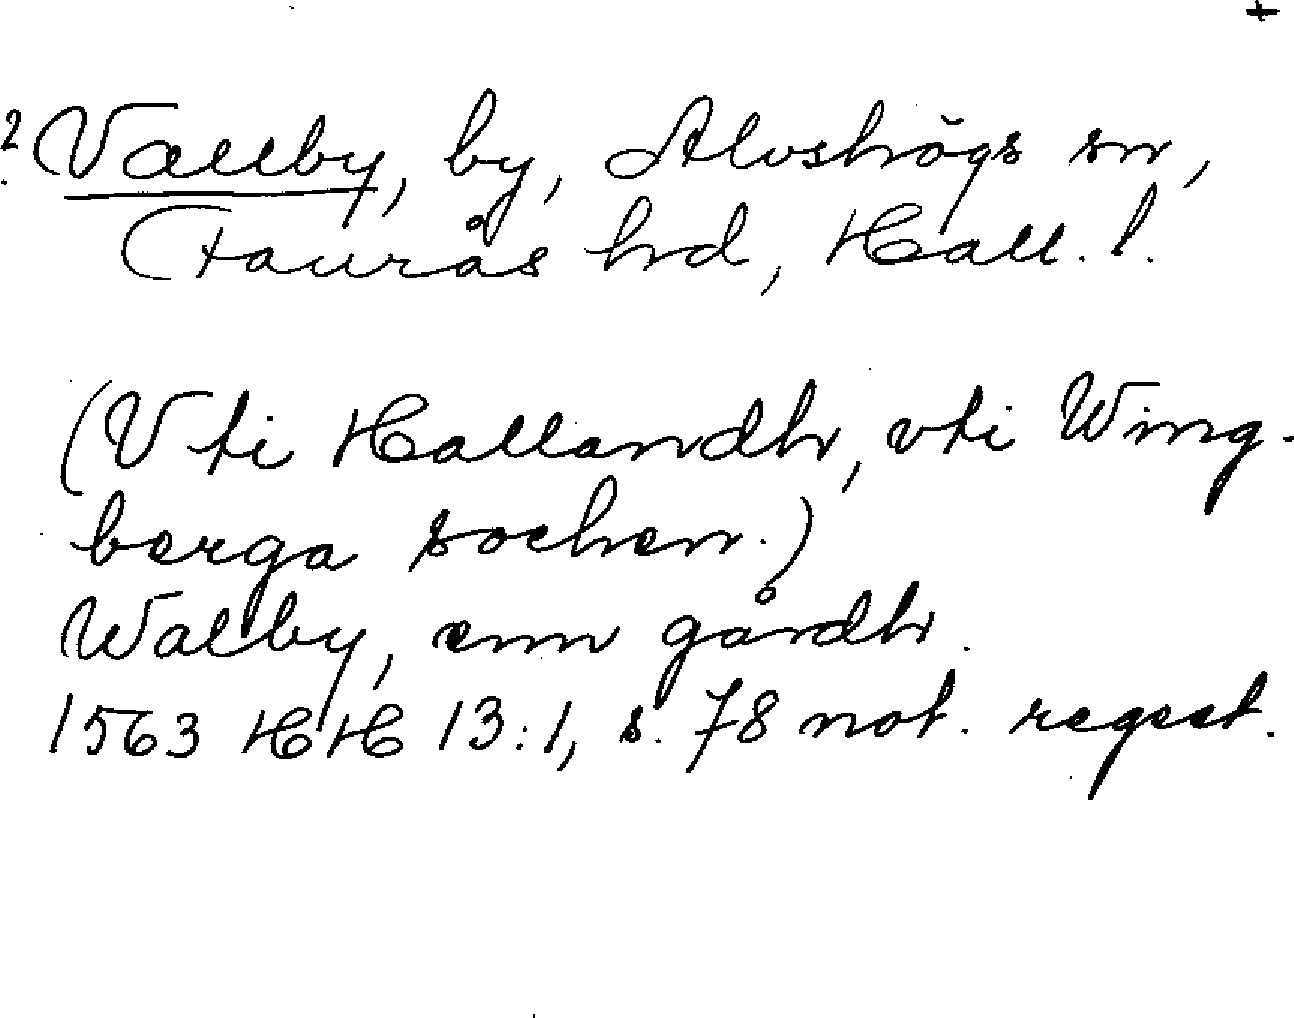 +
? Vallby, by, Alvshögs sn,
Faurås hd, Hall. l.
(Vti Hallandh, vti Wing-
berga sochen.)
Walby, enn gårdh.
1563 HH 13:1, s. 78 not. regest.